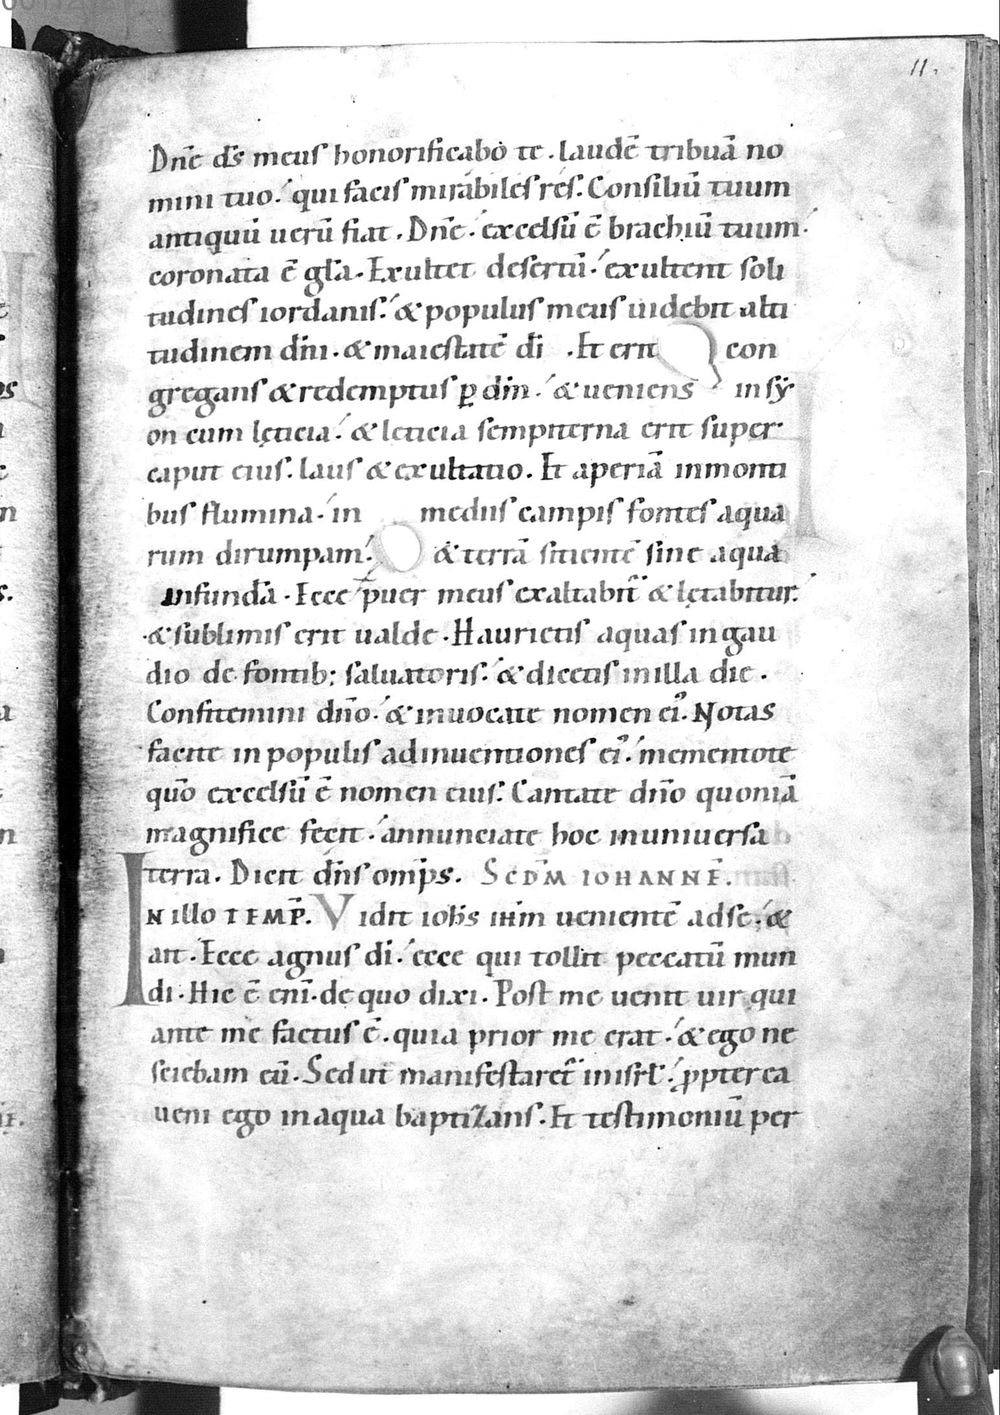 11.
Dn̄e ds̄ meus honorificabo te. laudē tribuā no
mini tuo. qui facis mirabiles res. Consiliū tuum
antiquū uerū fiat. Dn̄e. excelsū ē brachiū tuum.
coronata ē gl̄a. Exultet desertū. exultent soli
tudines iordanis. & populus meus uidebit alti
tudinem dn̄i. & maiestatē dī. Et erit con
gregans & redemptus ꝑ dm̄. & ueniens in sy
on cum lęticia. & leticia sempiterna erit super
caput eius. laus & exultatio. Et aperiā in monti
bus flumina. in mediis campis fontes aqua
rum dirumpam. & terrā sitientē sine aqua
infundā. Ecce puer meus exaltabit̄ & lętabitur.
& sublimis erit ualde. Haurietis aquas in gau
dio de fontib; saluatoris. & dicetis in illa die.
Confitemini dn̄o. & inuocate nomen ei᾽. Notas
facite in populis adinuentiones ei᾽. mementote
qūo excelsū ē nomen eius. Cantate dn̄o quoniā
magnifice fecit. annunciate hoc in uniuersa
terra. Dicit dn̄s om̄ps. SCDM̄ IOHANNĒ.
IN illo TEMP̄. Vidit ioh̄s ih̄m uenientē ad se. &
ait. Ecce agnus dī. ecce qui tollit peccatū mun
di. Hic ē eni᾽. de quo dixi. Post me uenit uir qui
ante me factus ē. quia prior me erat. & ego ne
sciebam eū. Sed ut manifestaret̄ in isrl̄. ꝓpterea
ueni ego in aqua baptizans. Et testimoniū per